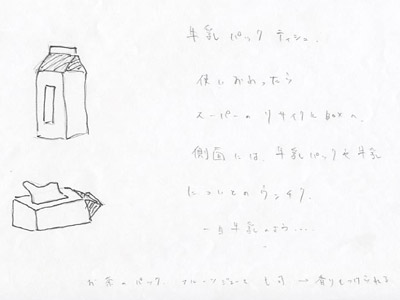 牛乳パック ティシュ.
使いおわったら
スーパーの リサイクル BOXへ.
側面には、牛乳パックや牛乳
についてのウンチク.
一見牛乳のよう....
お茶のパック. フルーツジュース も可 → 香りもつけられる